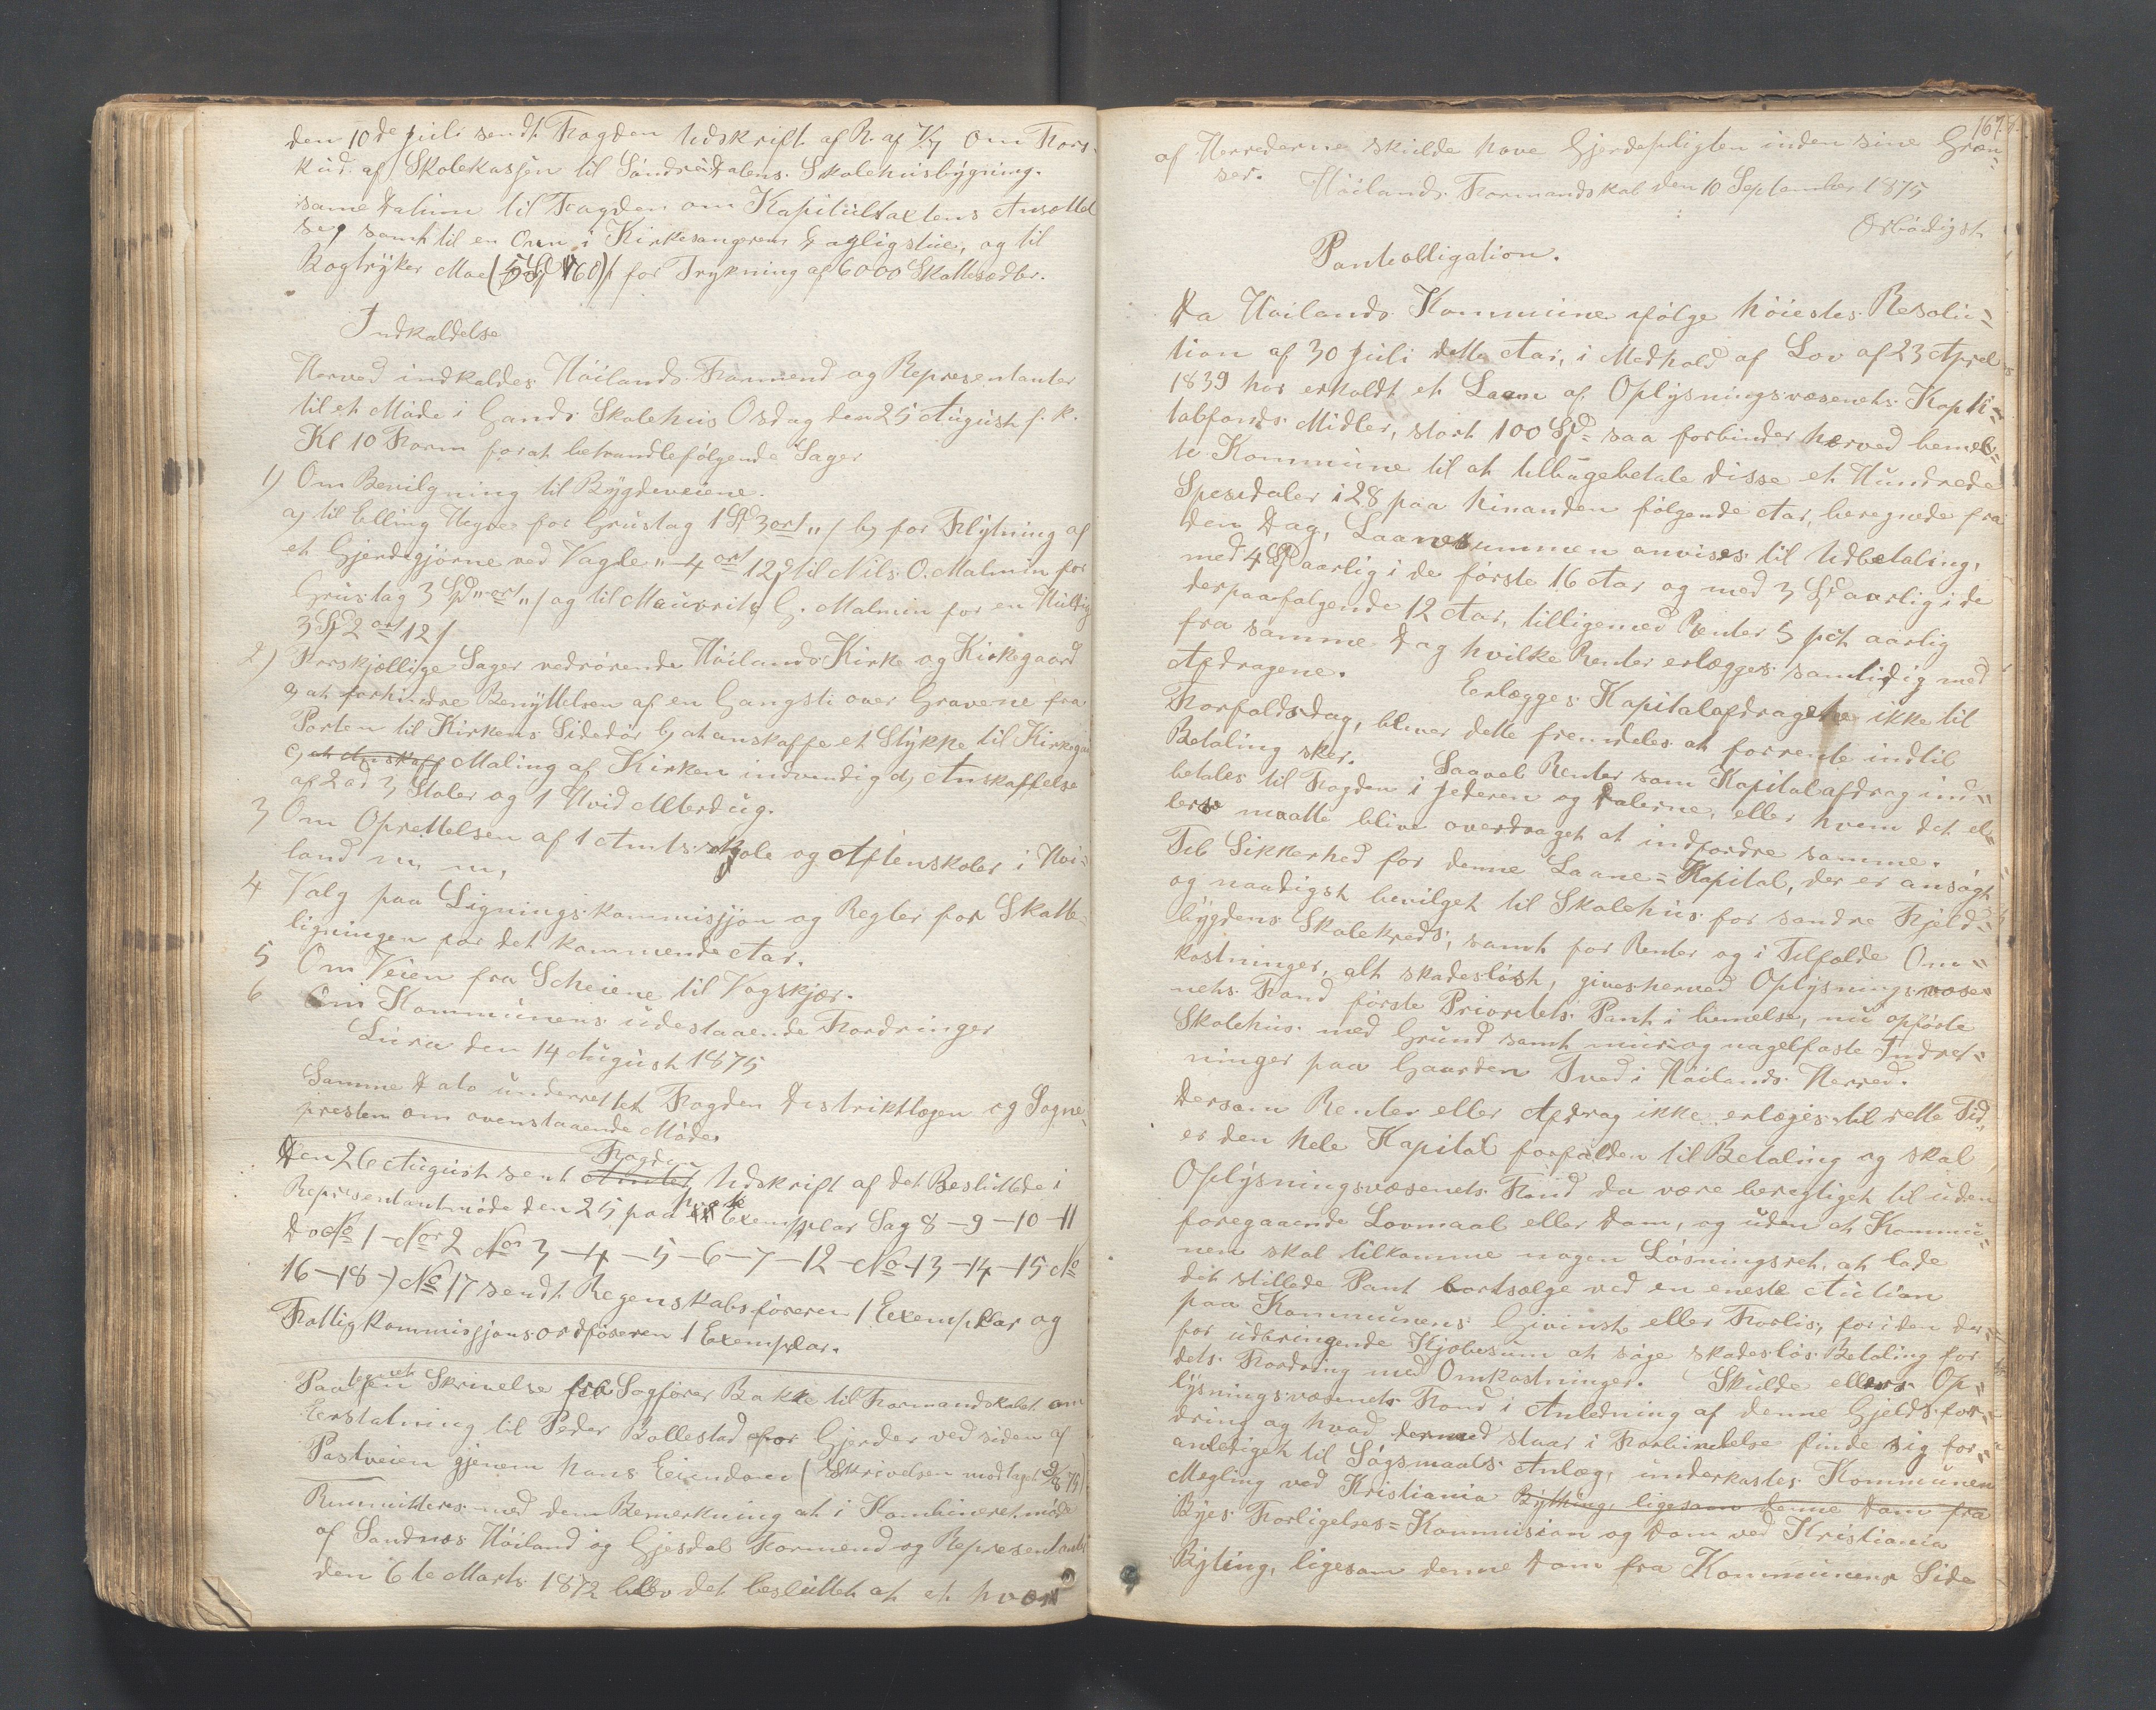 den 10de Juli sendt Fogden Udskrift af R. af 1/7 Om Fors-
kud af Skolekassen til Søndre Dalens Skolehusbygning.
same Datum til Fogden om Kapitultaxtens Ansættel
se, samt til en Ovn i Kirkesangerens Dagligstue, og til
Bogtryker Moe (5 Spd 60 s) for Trykning af 6000 Skattesedler.
Indkaldelse
Herved indkaldes Høilands Formend og Representanter
til et Møde i Gands Skolehus Osdag den 25 August f. k.
Kl 10 Form for at behandle følgende Sager
1) Om Bevilgning til Bygdeveiene.
a) til Elling Hegre for Grustag 1 Spd 3 ort " s b) for Flytning af
et Gjerde gjørne ved Vagle " - 4 ort 12 s til Nils O. Malmin for
Grustag 3 Spd " ort " s og til Mauvrits G. Malmin for en
3 Spd 2 ort 12 s
2) Forskjellige Sager vedrørende Høilands Kirke og Kirkegaard
a) at forhindre Benyttelsen af en Gangsti over Gravene fra
Porten til Kirkens Sidedør b) at anskaffe et Stykke til Kirkega
c) at Anskaff Maling af Kirken indvendig d) Anskaffelse
af 2 a 3 Stoler og 1 Hvid Alterdug.
3 Om Oprettelsen af 1 Amtsskole og Aftenskoler i Høi-
land m, m,
4 Valg paa Ligningskommissjon og Regler for Skatte-
ligningen for det kommende Aar.
5 Om Veien fra Scheiene til Vagskjær.
6 Om Kommunens udestaaende Fordringer
Lura den 14 August 1875
Samme Dato underrettet Fogden Distriktlægen og Sogne-
presten om ovenstaaende Møde.
Fogden
Den 26 August sent Amtet Udskrift af det Besluttede i
Representantmøde den 25 paa Exemplar Sag 8 - 9 - 10 - 11
do No 1 - No 2 No 3 - 4 - 5 - 6 - 7 - 12 - No 13 - 14 - 15 No
16 - 18 -) No 17 sendt Regenskabsføreren 1 Exemplar og
Fattigkommissjonsordføreren 1 Exemplar.
Paategnet Skrivelse fra Sagfører Bakke til Formandskabet om
Eerstatning til Peder Bollestad for Gjerder ved siden af
Postveien gjenem hans Eiendom (Skrivelsen modtaget 2/8 75)
Rumitteres med dem Bemerkning at i Kombineret møde
af Sandnes Høiland og Gjesdal Formend og Representant
den 6te Marts 1872 blev det besluttet at et hvert
167.
af Herrederne skulde have Gjerdepligten inden sine Græn-
ser. Høilands Formandskab den 10 September 1875
Ærbødigst
Panteobligation.
Da Høilands Kommune ifølge høiestes Resolu-
tion af 30 Juli dette Aar, i Medhold af Lov af 23 April
1839 har erholdt et Laan af Oplysningsvæsenets Kapi-
talsfonds Midler, stort 100 Spd = saa forbinder herved bemel-
te Kommune til at tilbagebetale disse et Hundrede
Spesidaler i 28 paa hinanden følgende Aar, beregnede fra
den Dag, Laanesummen anvises til Udbetaling,
med 4 Spd aarlig i de første 16 Aar og med 3 Spd aarlig i de
derpaafølgende 12 Aar, tilligemed Renter 5 pct aarlig
fra samme Dag hvilke Renter erlægges samtidig med
Afdragene. Eerlægges Kapitalafdragene ikke til
Forfaldsdag, bliver dette fremdeles at forrente indtil
Betaling sker. Saavel Renter som Kapitalafdrag ind-
betales til Fogden i Jederen og Dalerne, eller hvem det el-
lerse maatte blive overdraget at indfordre samme.
Til Sikkerhed for denne Laane=Kapital, der er ansøgt
og naadigst bevilget til Skolehus for søndre Fjeld-
bygdens Skolekreds, samt for Renter og i Tilfælde Om-
kostninger, alt skadesløst, gives herved Oplysningsvæse-
nets Fond første Prioritets Pant i bemelte, nu opførte
Skolehus med Grund samt mur og nagelfaste Indret-
ninger paa Gaarden Tved i Høilands Herred.
Dersom Renter eller Afdrag ikke erlæges til rette Tid,
er den hele Kapital forfalden til Betaling og skal
Oplysningsvæsenets Fond da være beregtiget til uden
foregaaende Lovmaal eller Dom, og uden at Kommu-
nen skal tilkomme nogen Løsningsret, at lade
det stillede Pant bortsælge ved en eneste Auction
paa Kommunens Gevinst eller Forlis, for i den der-
for udbringende Kjøbesum at søge skadesløs Betaling for
dets Fordring med Omkostninger. Skulde ellers Op-
lysningsvæsenets Fond i Anledning af denne Gjeldsfor-
dring og hvad dermed staar i Forbindelse finde sig for-
anlediget til Søgsmaals Anlæg, underkastes Kommunen
Megling ved Kristiania Bything, ligesom denne Dom fra
Byes Forligelses=Kommision og Dom ved Kristiania
Byting, ligesom denne Dom fra Kommunens Side